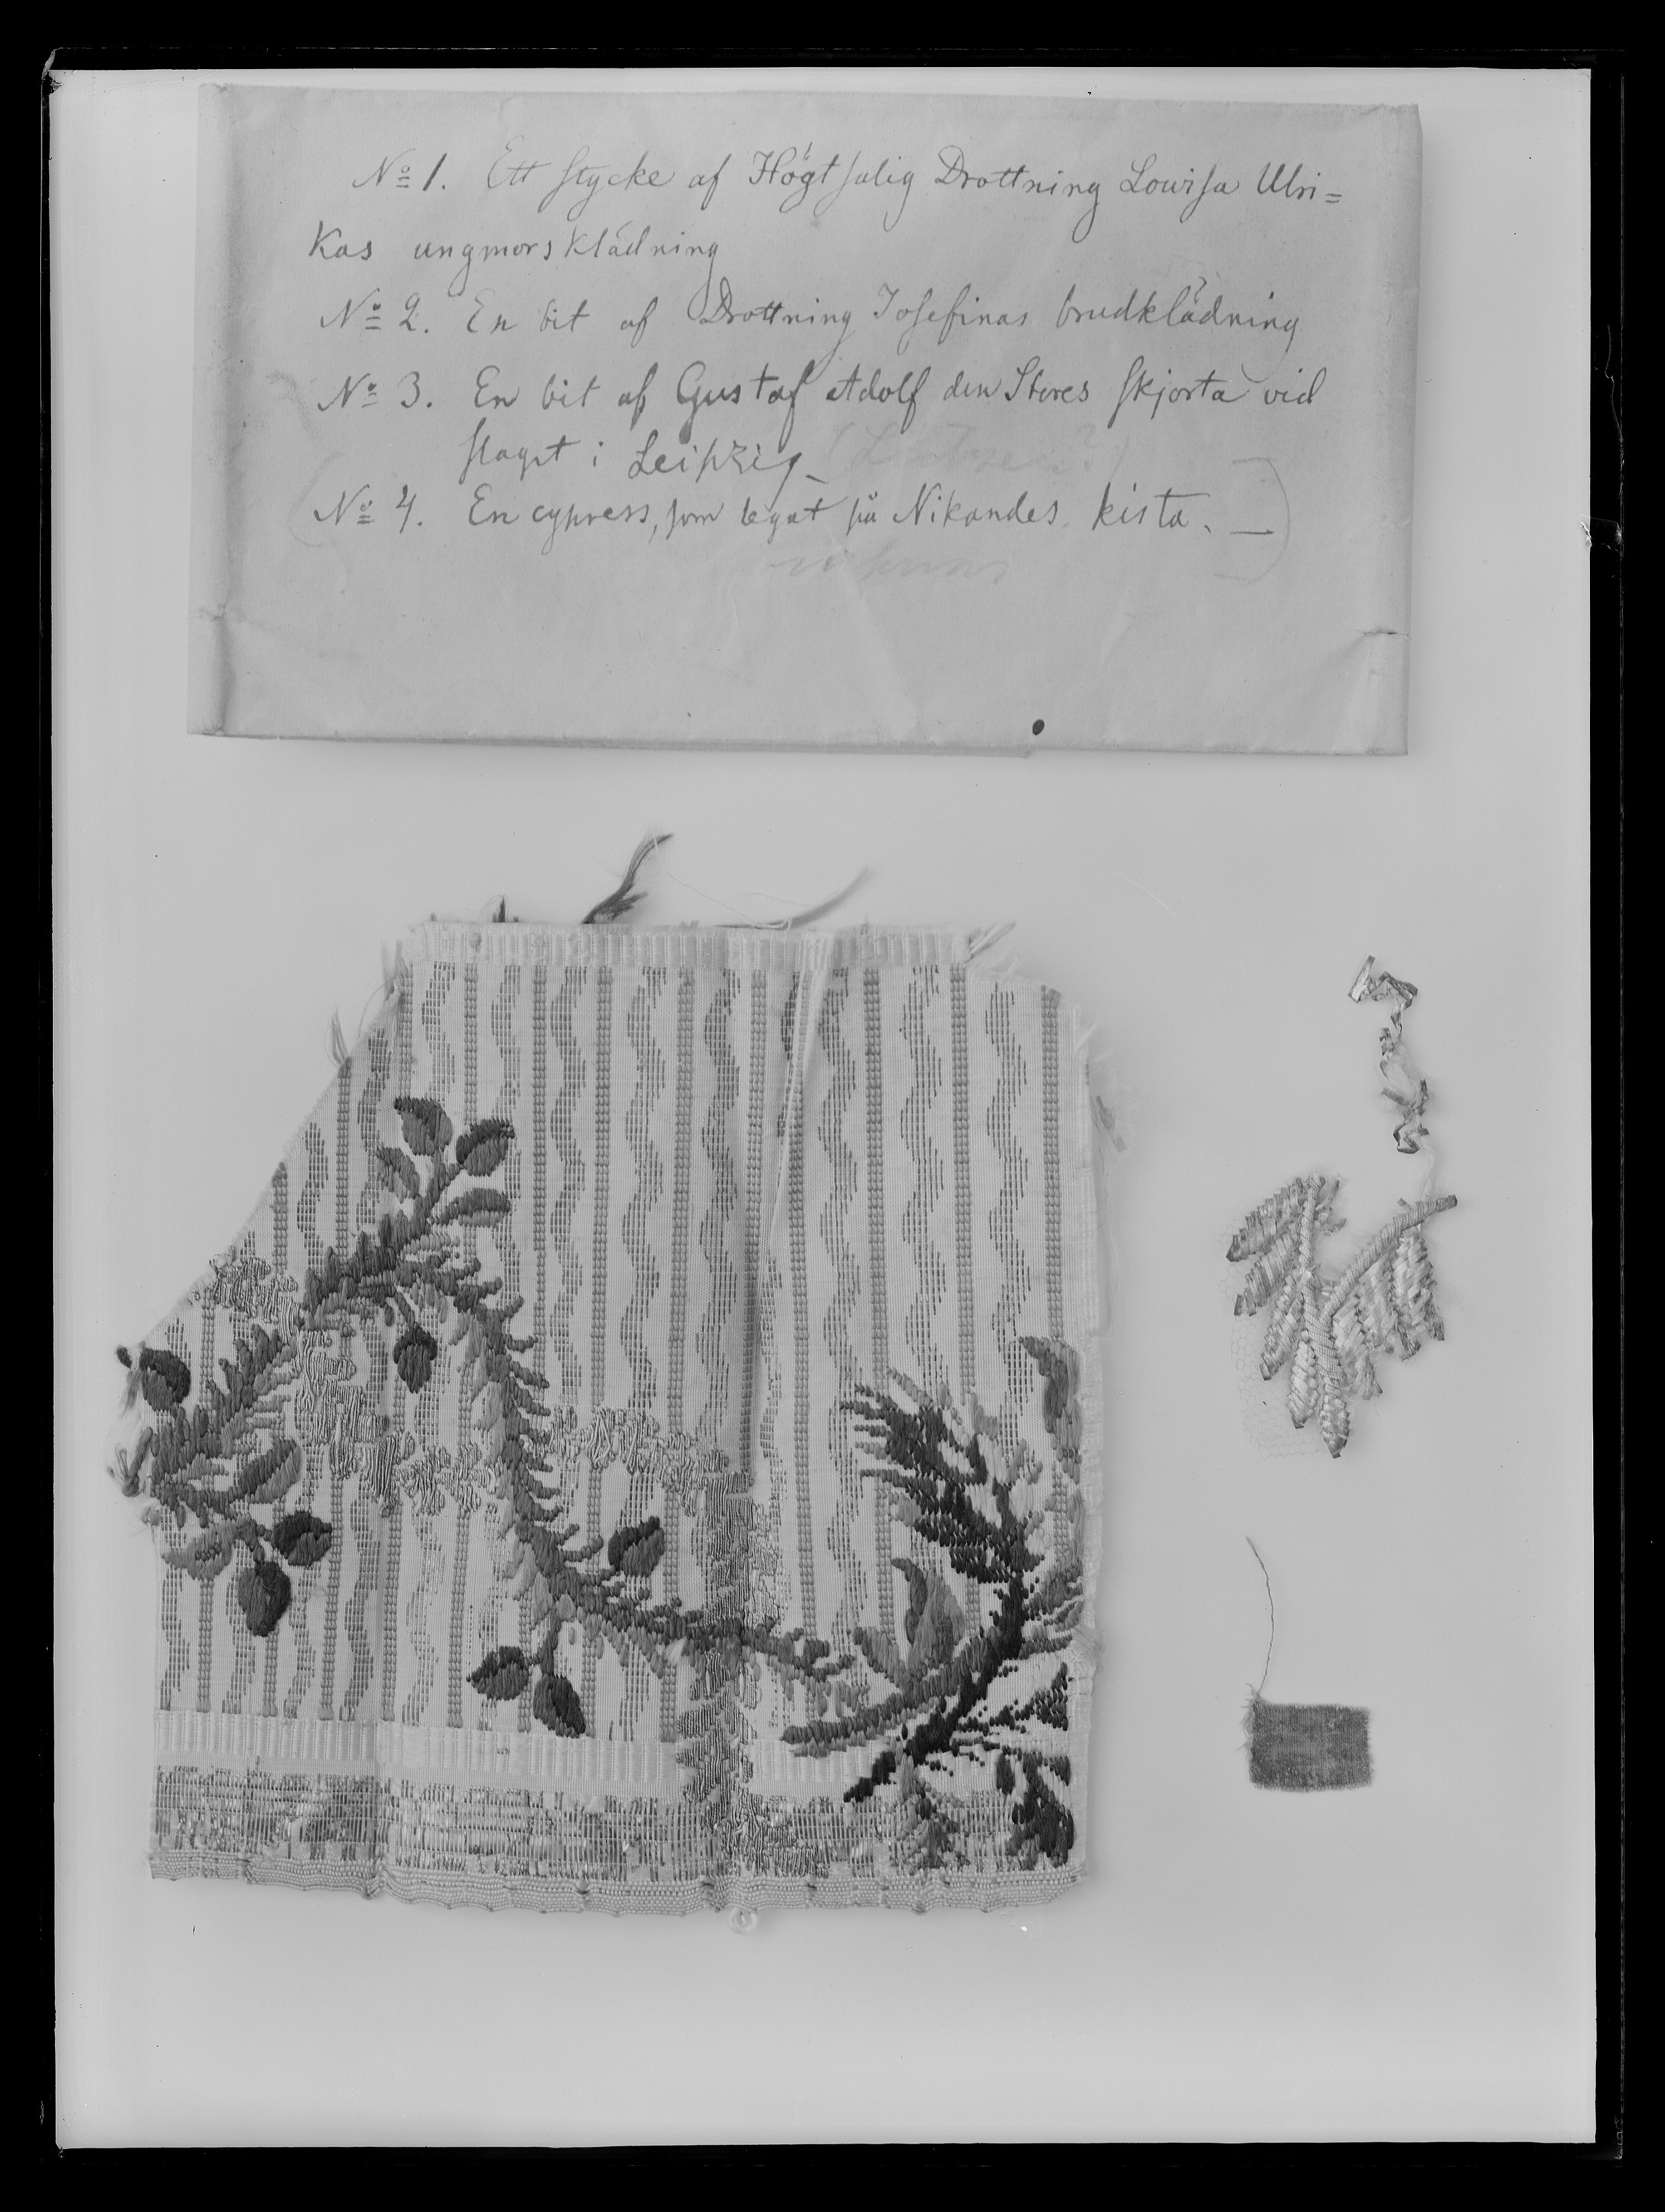 № 1. Ett stycke af Högtsalig Drottning Lowisa Ulri=
kas ungmorsklädning
№ 2. En bit af Drottning Josefinas brudklädning
№ 3. En bit af Gustaf Adolf den Stores skjorta vid
slaget i Leipzig (Lützen?)
(№ 4. En cypress, som legat på Nikandes kista. —)